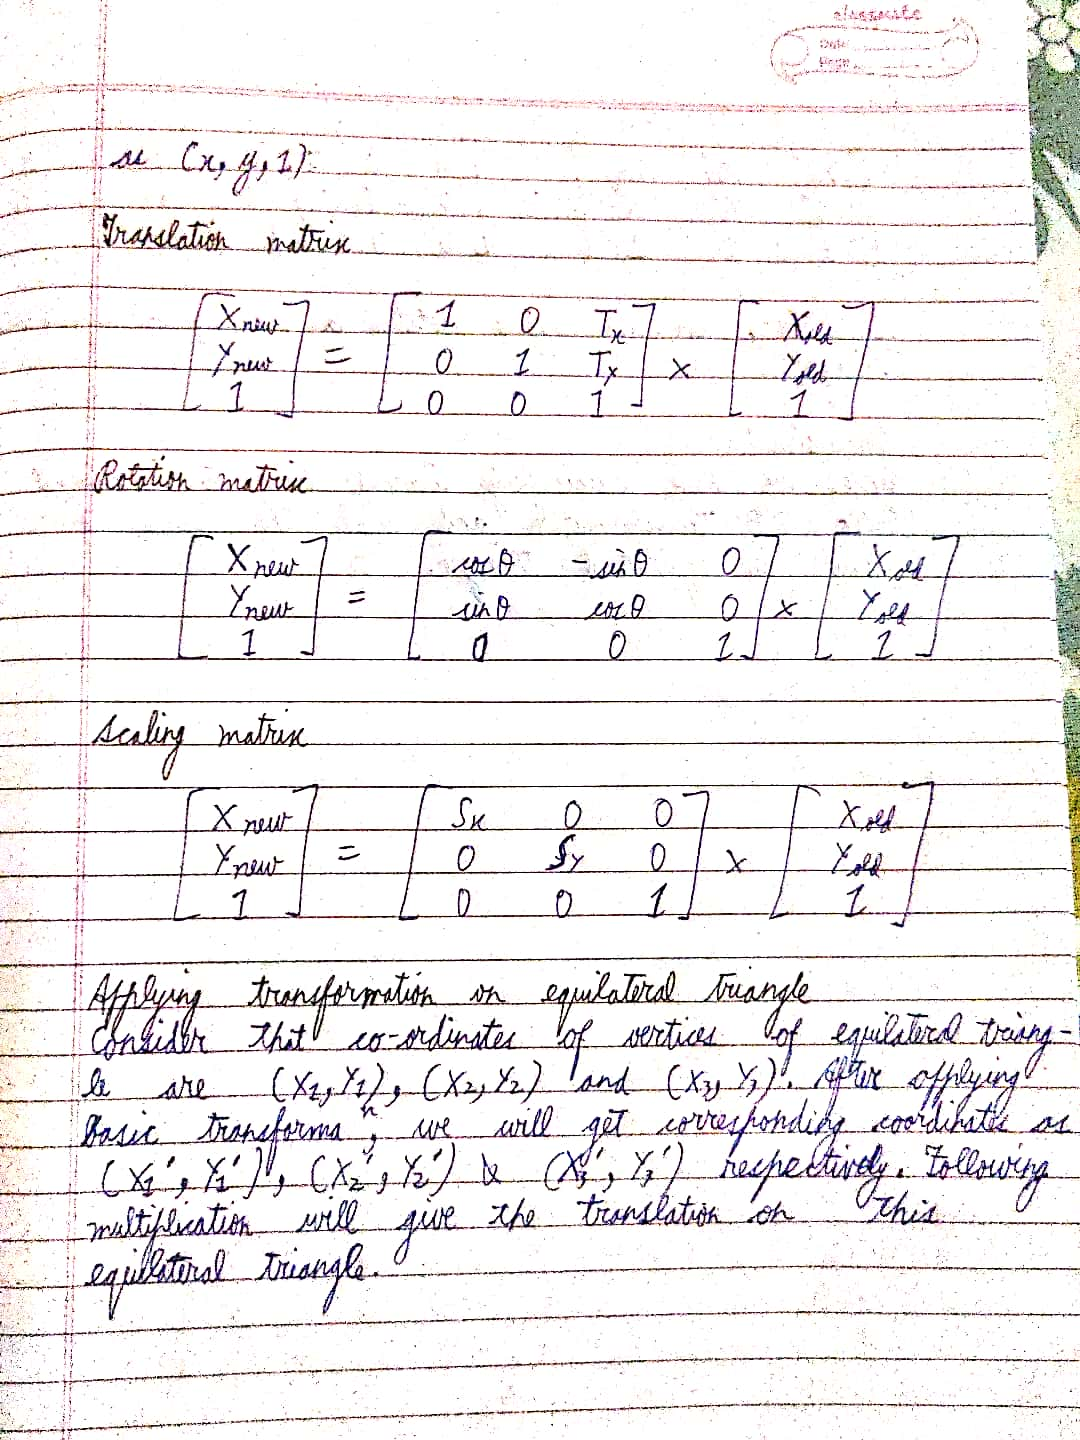 classmate
Date
Page
as (x, y, 1)
Translation matrix
[Xnew Ynew 1] = [1 0 Tx; 0 1 Tx; 0 0 1] × [Xold Yold 1]
Rotation matrix
[Xnew Ynew 1] = [cosθ -sinθ 0; sinθ cosθ 0; 0 0 1] × [Xold Yold 1]
Scaling matrix
[Xnew Ynew 1] = [Sx 0 0; 0 Sy 0; 0 0 1] × [Xold Yold 1]
Applying transformation on equilateral triangle
Consider that co-ordinates of vertices of equilateral triang-
le are (X1, Y1), (X2, Y2) and (X3, Y3). After applying
Basic transformaⁿ, we will get corresponding coordinates as
(X1', Y1'), (X2', Y2') & (X3', Y3') respectively. Following
multiplication will give the translation on this
equilateral triangle.